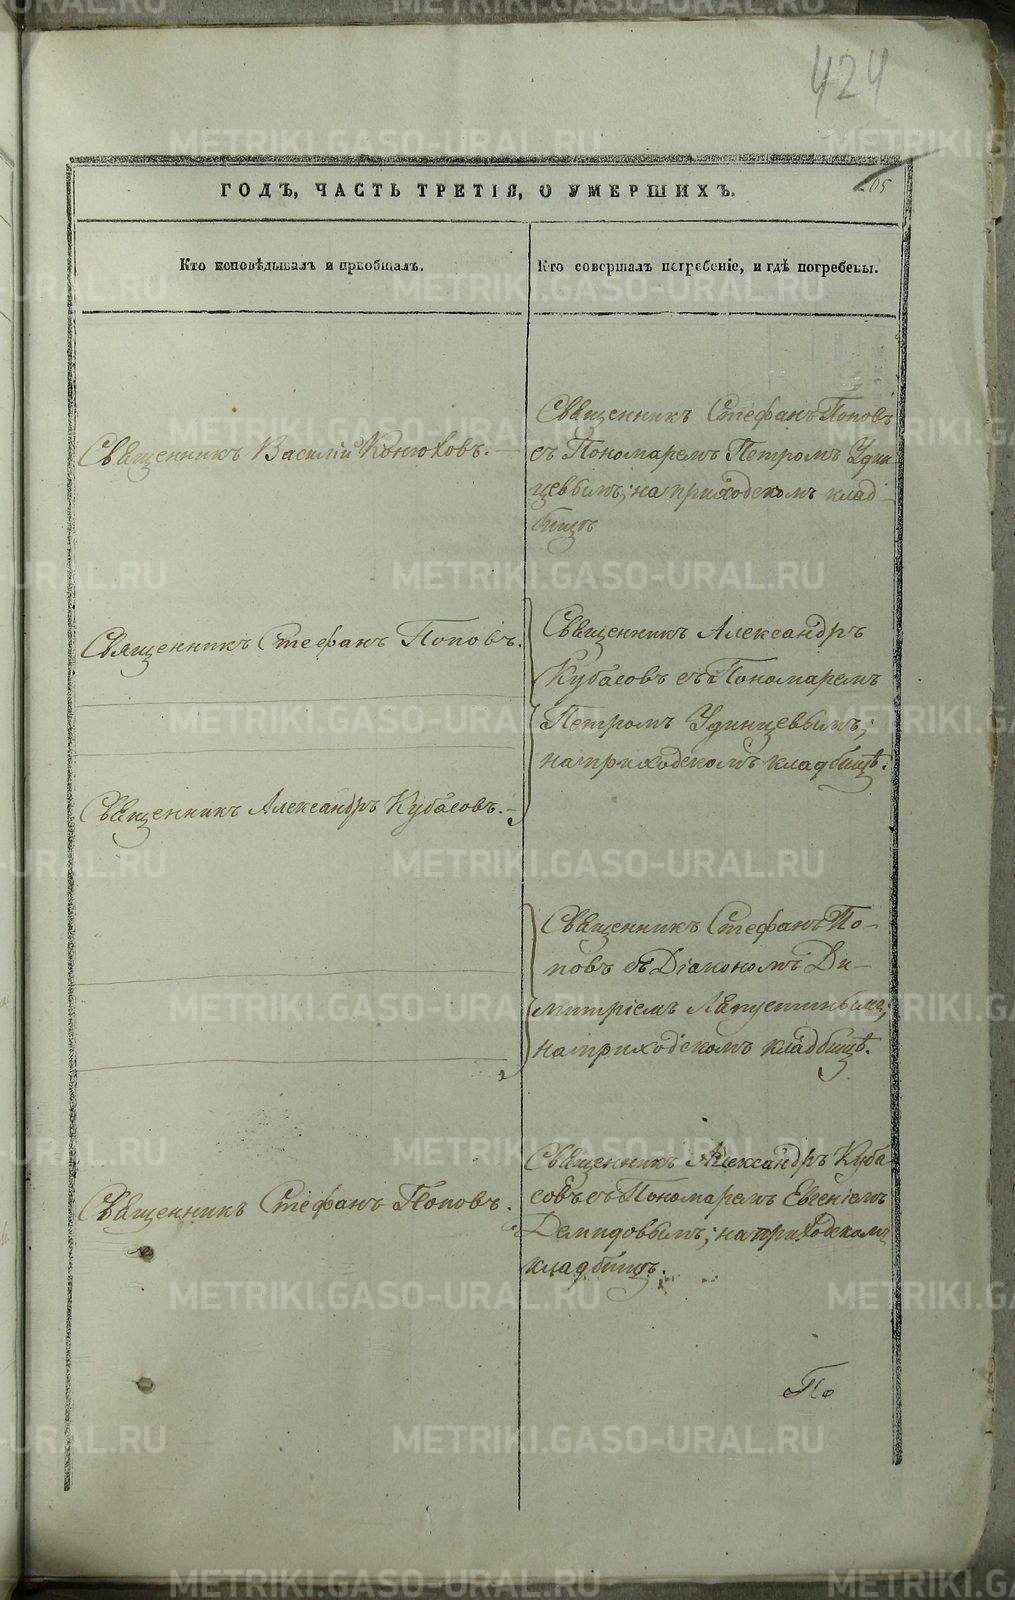 424
205
ГОДЪ, ЧАСТЬ ТРЕТІЯ, О УМЕРШИХЪ.
Кто исповѣдывалъ и пріобщалъ.
Кто совершалъ погребеніе, и гдѣ погребены.
Священникъ Василій Конюховъ.
Священникъ Стефанъ Поповъ
съ Пономаремъ Петромъ Удин
цевымъ; на приходскомъ клад-
бищѣ
Священникъ Стефанъ Поповъ.
Священникъ Александръ
Кубасовъ съ Пономаремъ
Петромъ Удинцевымъ;
на приходскомъ кладбищѣ.
Священникъ Александръ Кубасовъ.
Священникъ Стефанъ По-
повъ съ Діакономъ Ди-
митріемъ Августинымъ;
на приходскомъ кладбищѣ.
Священникъ Стефанъ Поповъ.
Священникъ Александръ Куба
совъ съ Пономаремъ Евгеніемъ
Демидовымъ; на приходскомъ
кладбищѣ.
По
METRIKI.GASO-URAL.RU